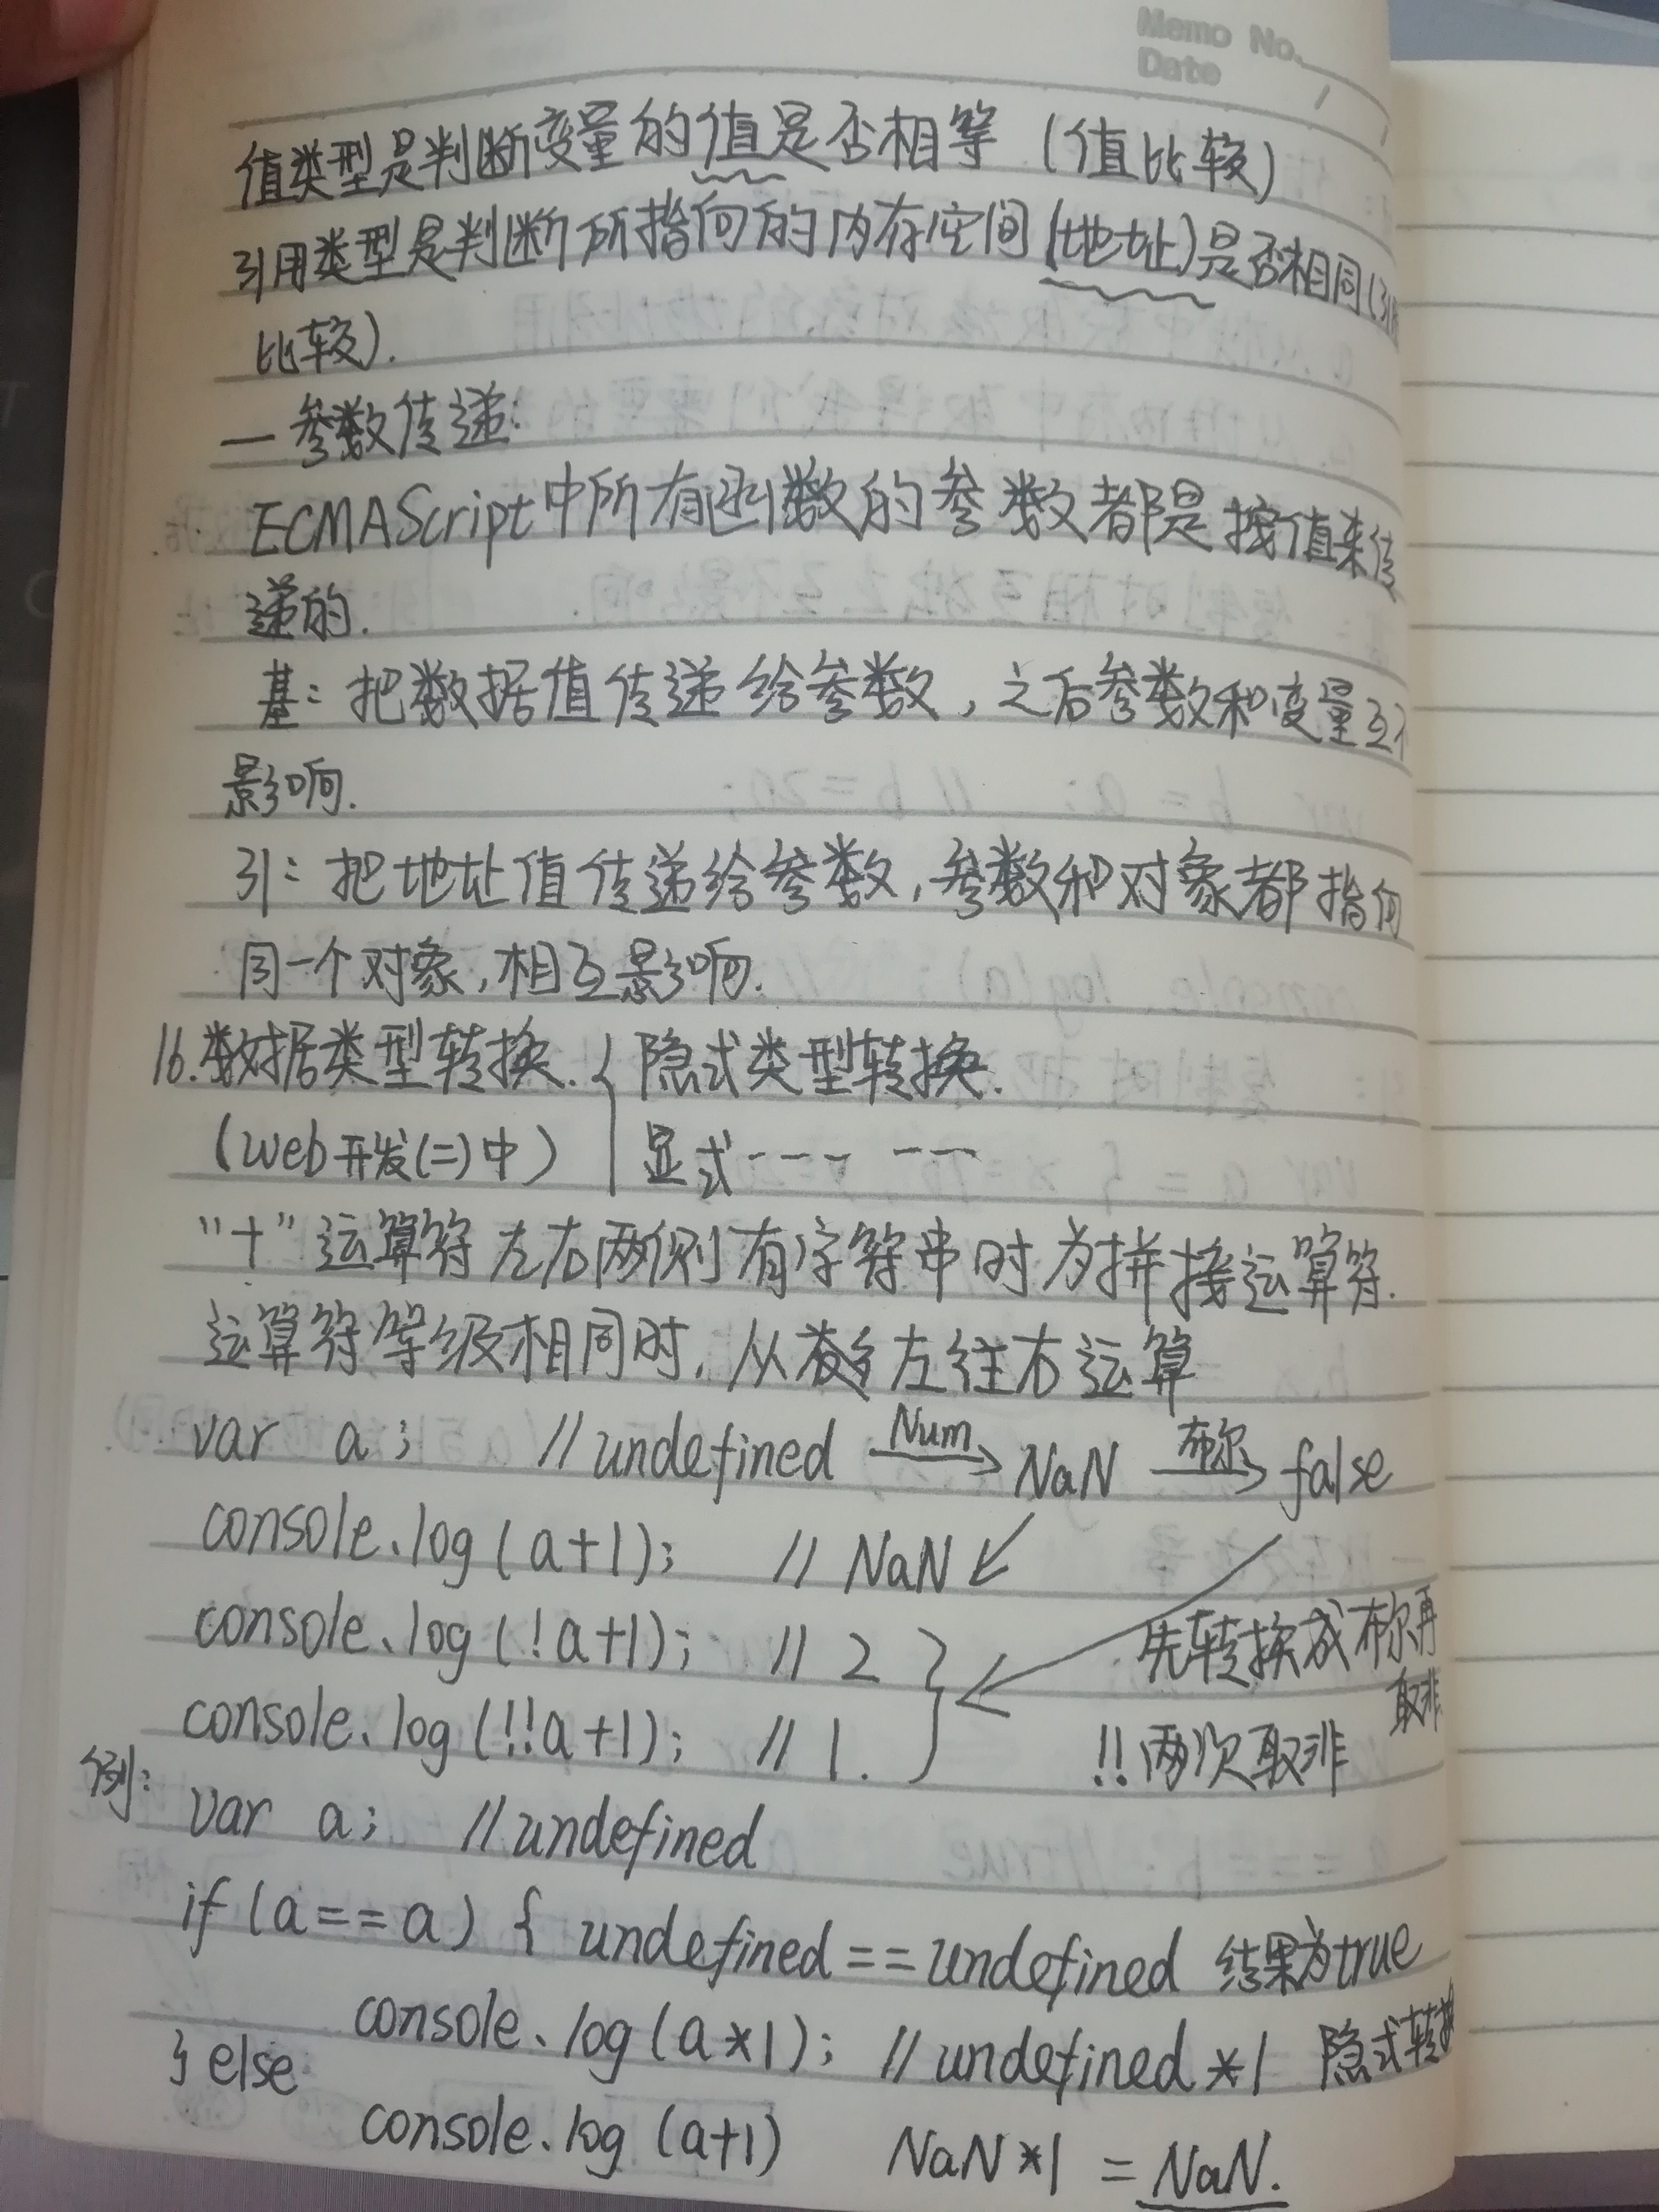 Memo No.
Date
值类型是判断变量的值是否相等 (值比较)
引用类型是判断所指向的内存空间(地址)是否相同(引
比较).
一 参数传递:
ECMAScript中所有函数的参数都是按值来传
递的.
基: 把数据值传递给参数, 之后参数和变量互不
影响.
引: 把地址值传递给参数, 参数和对象都指向
同一个对象, 相互影响.
16.数据类型转换. { 隐式类型转换.
(web开发(二)中) 显式---- ---
"+" 运算符左右两侧有字符串时为拼接运算符.
运算符等级相同时, 从左往右运算
var a; // undefined Num→ NaN 布尔→ false
console.log(a+1); // NaN ↙
console.log(!a+1); // 2 } ← 先转换成布尔再
取非
console.log(!!a+1); // 1. !!两次取非
例:
var a; // undefined
if (a==a) { undefined==undefined 结果为true
console.log(a*1); // undefined*1 隐式转换
} else
console.log (a+1) NaN*1 = NaN.